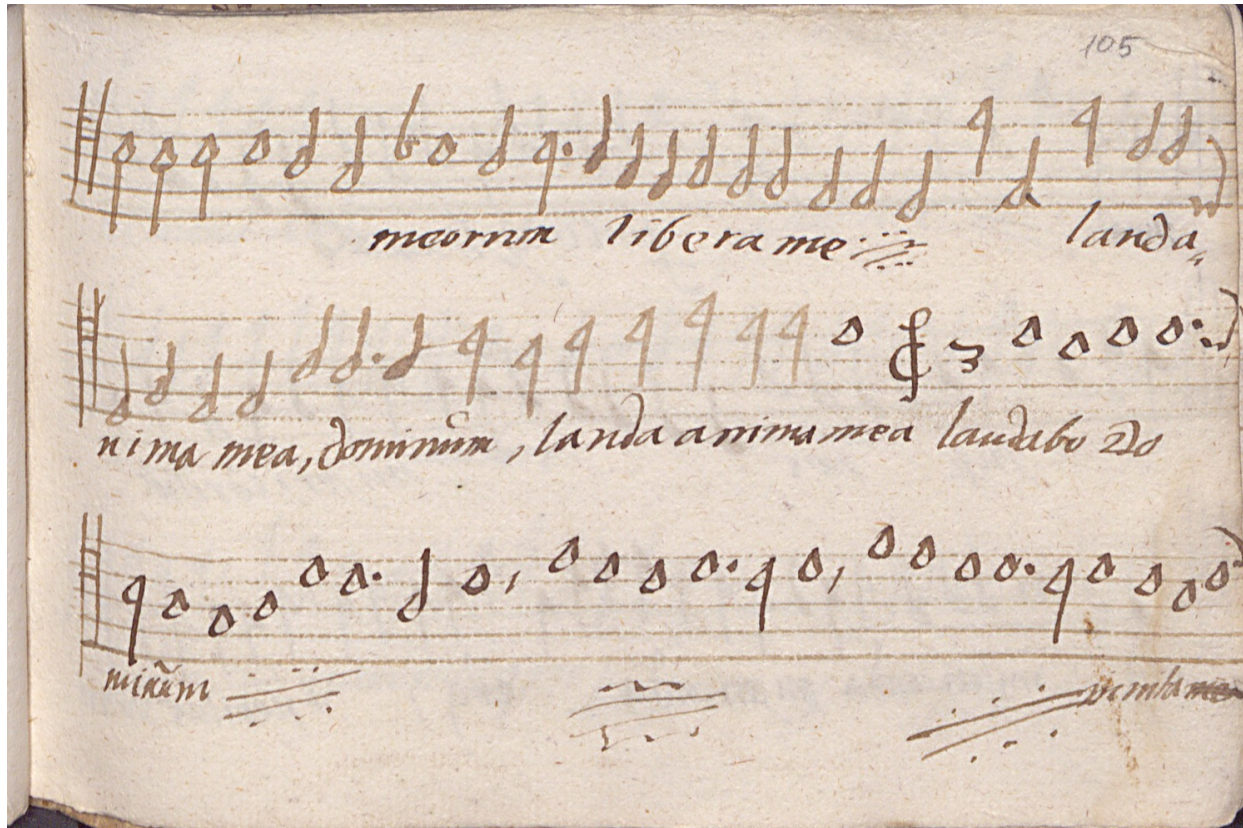 105
meorum libera me lauda
nima mea, dominũm, lauda anima mea laudabo Do
minũm in vita